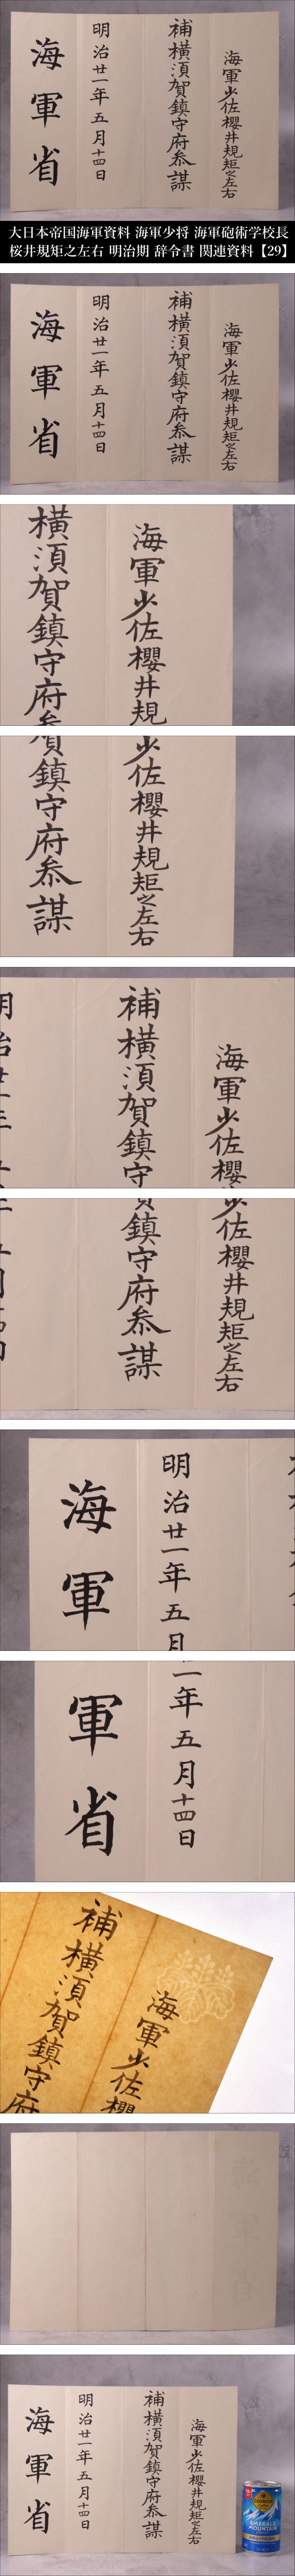 海軍少佐櫻井規矩之左右
補横須賀鎮守府参謀
明治廿一年五月十四日
海軍省
大日本帝国海軍資料 海軍少将 海軍砲術学校長
桜井規矩之左右 明治期 辞令書 関連資料【29】
海軍少佐櫻井規矩之左右
補横須賀鎮守府参謀
明治廿一年五月十四日
海軍省
海軍少佐櫻井規
横須賀鎮守府参
少佐櫻井規矩之左右
賀鎮守府参謀
海軍少佐櫻
補横須賀鎮守
明治廿一年
少佐櫻井規矩之左右
賀鎮守府参謀
明治廿一年五月
海軍
一年五月十四日
軍省
海軍少佐櫻
補横須賀鎮守府
海軍少佐櫻井規矩之左右
補横須賀鎮守府参謀
明治廿一年五月十四日
海軍省
GEORGIA
EMERALD
MOUNTAIN